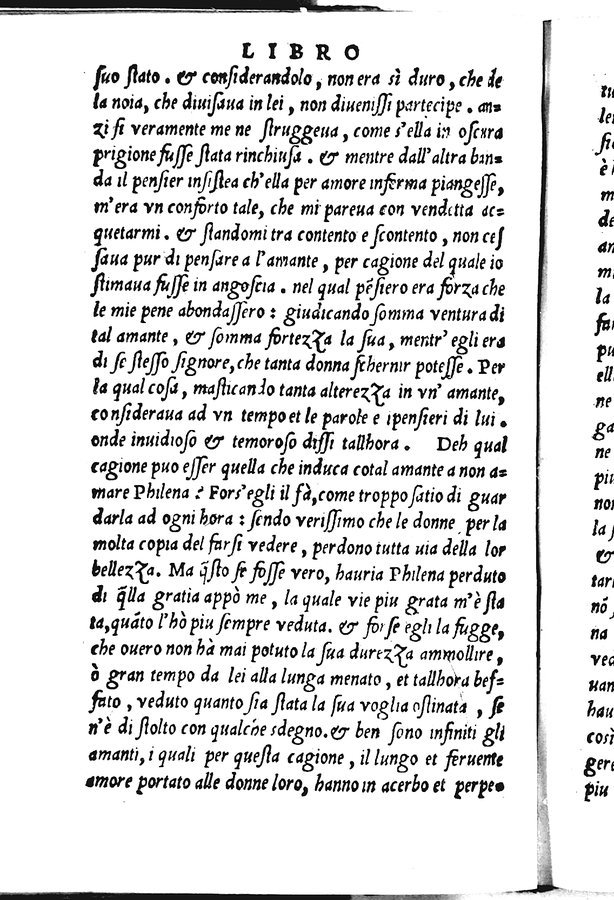 LIBRO
suo stato. & considerandolo, non era sì duro, che de
la noia, che diuisaua in lei, non diuenissi partecipe. an=
zi si veramente me ne struggeua, come s'ella in oscura
prigione fusse stata rinchiusa. & mentre dall'altra ban=
da il pensier insistea ch'ella per amore inferma piangesse,
m'era vn conforto tale, che mi pareua con vendetta ac=
quetarmi. & standomi tra contento e scontento, non ces
saua pur di pensare a l'amante, per cagione del quale io
stimaua fusse in angoscia. nel qual pẽsiero era forza che
le mie pene abondassero: giudicando somma ventura di
tal amante, & somma fortezza la sua, mentr'egli era
di se stesso signore, che tanta donna schernir potesse. Per
la qual cosa, masticando tanta alterezza in vn'amante,
consideraua ad vn tempo et le parole e ipensieri di lui.
onde inuidioso & temoroso dissi tallhora. Deh qual
cagione puo esser quella che induca cotal amante a non a=
mare Philena? Fors'egli il fà, come troppo satio di guar
darla ad ogni hora: sendo verissimo che le donne per la
molta copia del farsi vedere, perdono tutta uia della lor
bellezza. Ma q̃sto se fosse vero, hauria Philena perduto
di q̃lla gratia appò me, la quale vie piu grata m'è sta
ta, quãto l'hò piu sempre veduta. & forse egli la fugge,
che ouero non hà mai potuto la sua durezza ammollire,
ò gran tempo da lei alla lunga menato, et tallhora bef=
fato, veduto quanto sia stata la sua voglia ostinata, se
n'è di stolto con qualche sdegno. & ben sono infiniti gli
amanti, i quali per questa cagione, il lungo et feruente
amore portato alle donne loro, hanno in acerbo et perpe=